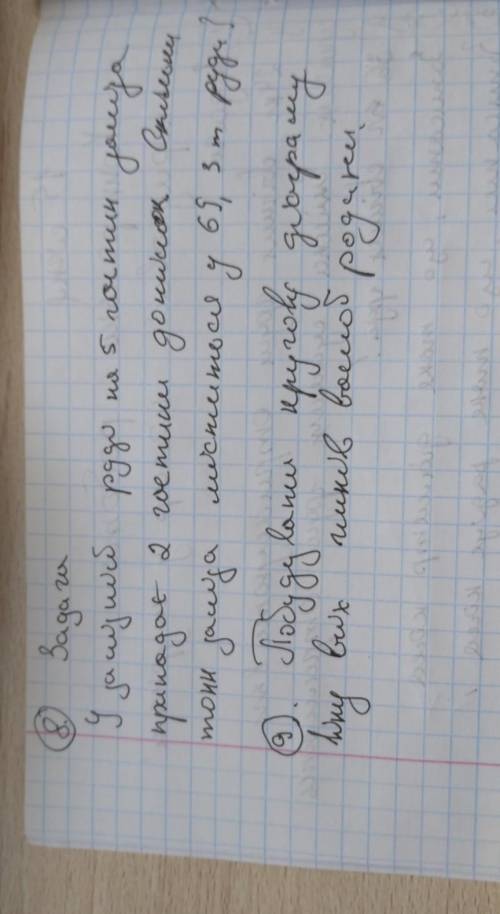 8. Задача
У залізній руді на 5 частин заліза
припадає 2 частини домішок Скільки
тонн заліза міститься у 69,3 т руди?
9. Побудувати кругову діаграму
віку всіх членів вашої родини.